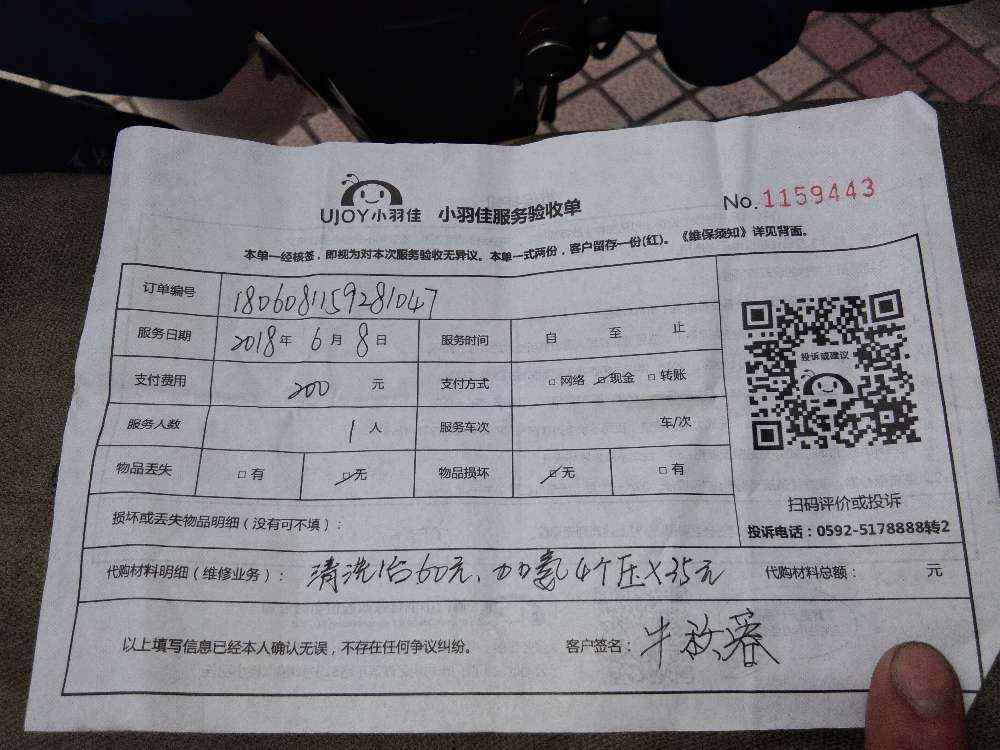 UJOY小羽佳 小羽佳服务验收单 No. 1159443
本单一经核签，即视为对本次服务验收无异议。本单一式两份，客户留存一份(红)。《维保须知》详见背面。
订单编号 1806081159281047
服务日期 2018年 6月 8日 服务时间 自 至 止
支付费用 200 元 支付方式 □网络 ☑现金 □转账
服务人数 1人 服务车次 车/次
物品丢失 □有 ☑无 物品损坏 ☑无 □有
投诉或建议
扫码评价或投诉
投诉电话：0592-5178888转2
损坏或丢失物品明细（没有可不填）：
代购材料明细（维修业务）： 清洗1台60元、加氟4个压×35元 代购材料总额： 元
以上填写信息已经本人确认无误，不存在任何争议纠纷。 客户签名：牛